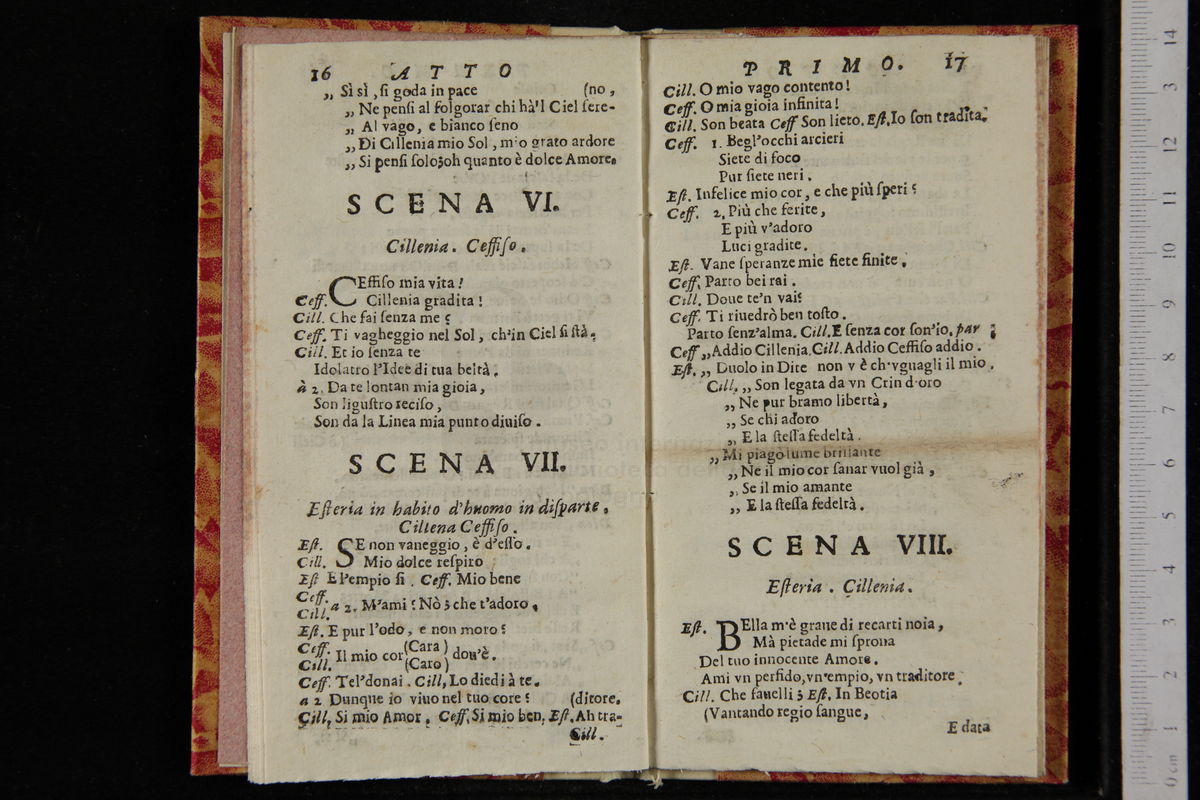 16 ATTO
„ Sì sì, ſi goda in pace (no,
„ Ne penſi al folgorar chi hà'l Ciel ſere-
„ Al vago, e bianco ſeno
„ Di Cillenia mio Sol, mio grato ardore
„ Si penſi ſolo; oh quanto è dolce Amore.
SCENA VI.
Cillenia. Ceffiſo.
CEffiſo mia vita!
Ceff. Cillenia gradita!
Cill. Che fai ſenza me?
Ceff. Ti vagheggio nel Sol, ch'in Ciel ſi ſtà.
Cill. Et io ſenza te
Idolatro l'Idee di tua beltà.
à 2. Da te lontan mia gioia,
Son liguſtro reciſo,
Son da la Linea mia punto diuiſo.
SCENA VII.
Eſteria in habito d'huomo in diſparte,
Cillena Ceffiſo.
Eſt. SE non vaneggio, è d'eſſo.
Cill. Mio dolce reſpiro
Eſt E l'empio ſi. Ceff. Mio bene
Ceff.
Cill. a 2. M'ami? Nò; che t'adoro,
Eſt. E pur l'odo, e non moro?
Ceff. (Cara)
Il mio cor dou'è.
Cill. (Caro)
Ceff. Tel'donai. Cill, Lo diedi à te.
a 2 Dunque io viuo nel tuo core? (ditore.
Cill, Si mio Amor. Ceff. Si mio ben. Eſt. Ah tra-
Cill.
PRIMO. 17
Cill. O mio vago contento!
Ceff. O mia gioia infinita!
Cill. Son beata Ceff Son lieto. Eſt. Io ſon tradita.
Ceff. 1. Begl'occhi arcieri
Siete di foco
Pur ſiete neri.
Eſt. Infelice mio cor, e che più ſperi?
Ceff. 2. Più che ferite,
E più v'adoro
Luci gradite.
Eſt. Vane ſperanze mie ſiete finite.
Ceff. Parto bei rai.
Cill. Doue te'n vai?
Ceff. Ti riuedrò ben toſto.
Parto ſenz'alma. Cill. E ſenza cor ſon'io. par
Ceff „ Addio Cillenia. Cill. Addio Ceffiſo addio.
Eſt. „ Duolo in Dite non v è ch'vguagli il mio.
Cill. „ Son legata da vn Crin d'oro
„ Ne pur bramo libertà,
„ Se chi adoro
„ E la ſteſſa fedeltà.
„ Mi piagò lume brillante
„ Ne il mio cor ſanar vuol già,
„ Se il mio amante
„ E la ſteſſa fedeltà.
SCENA VIII.
Eſteria. Cillenia.
Eſt. BElla m'è graue di recarti noia,
Mà pietade mi ſprona
Del tuo innocente Amore.
Ami vn perfido, vn'empio, vn traditore.
Cill. Che fauelli; Eſt. In Beotia
(Vantando regio ſangue,
E data